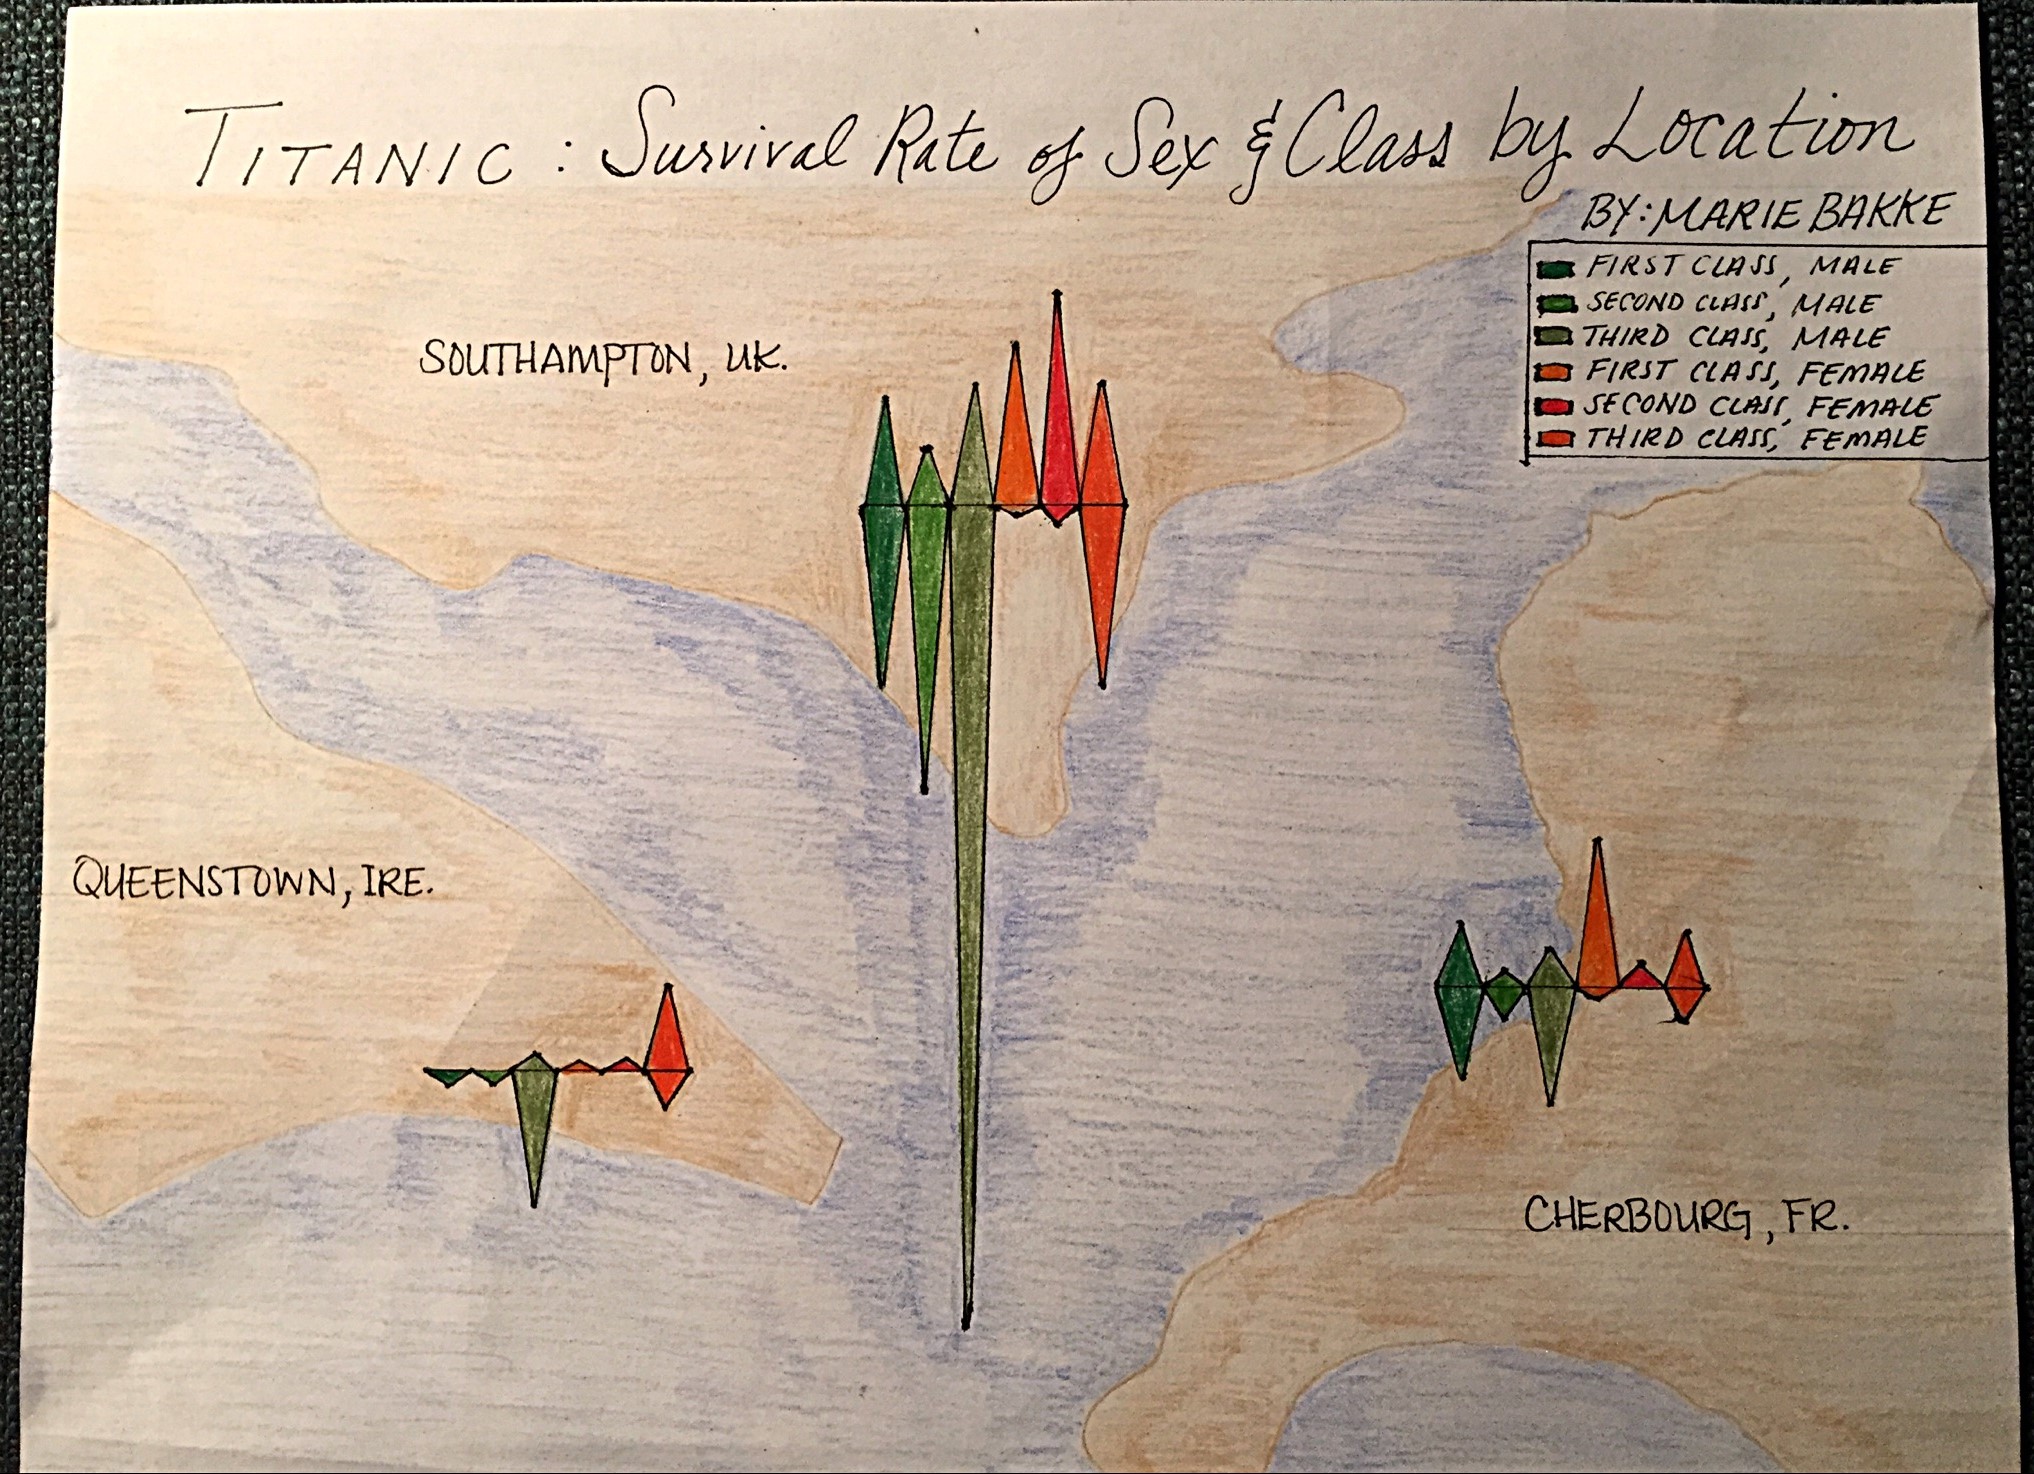 TITANIC: Survival Rate of Sex & Class by Location
BY: MARIE BAKKE
FIRST CLASS, MALE
SECOND CLASS, MALE
THIRD CLASS, MALE
FIRST CLASS, FEMALE
SECOND CLASS, FEMALE
THIRD CLASS, FEMALE
SOUTHAMPTON, UK.
QUEENSTOWN, IRE.
CHERBOURG, FR.